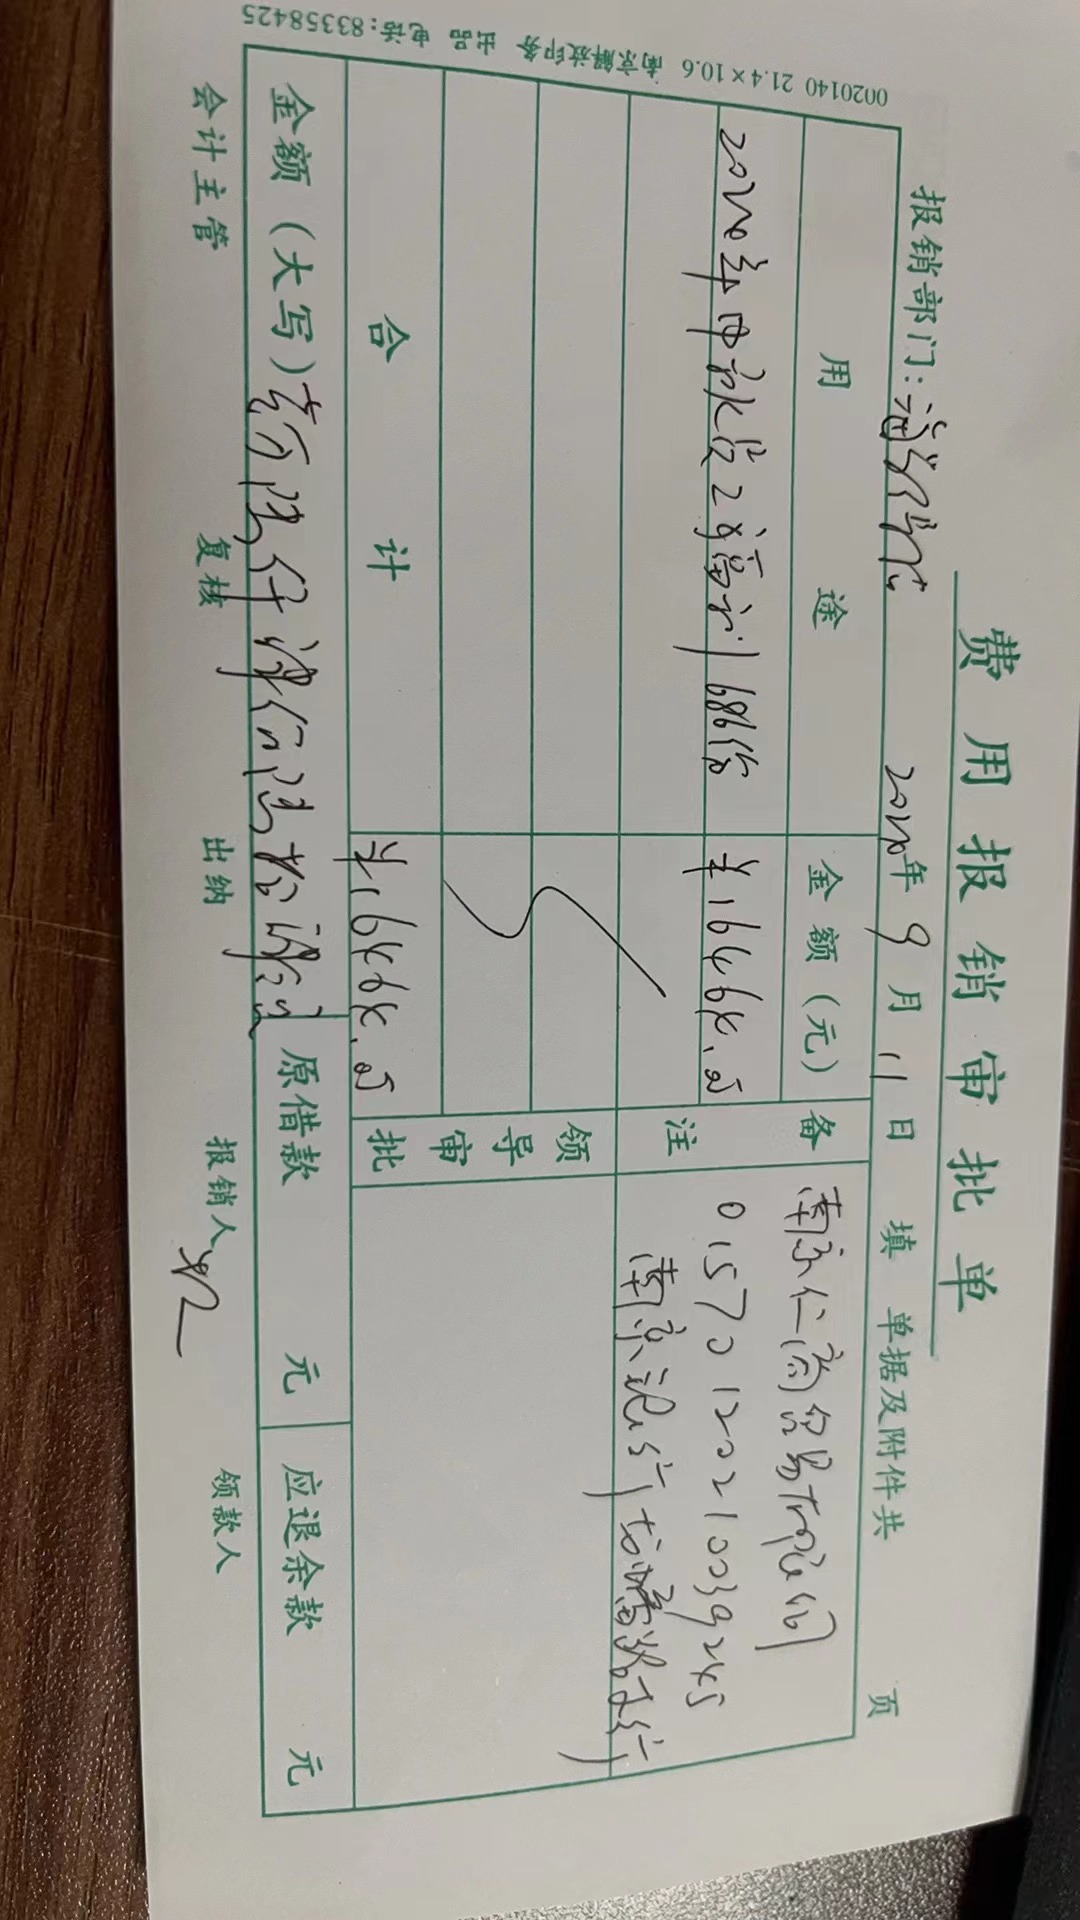 费用报销审批单
报销部门: 2020年9月11日填 单据及附件共 页
用途 金额(元) 备注
2020年中秋 工 168份 ¥16464.00
南京仁商贸易有限公司
01570120210039245
南京 行 支行
领导审批
合计 ¥16464.00
金额(大写) 壹万陆仟肆佰陆拾肆元 原借款 元 应退余款 元
会计主管 复核 出纳 报销人 领款人
0020140 21.4×10.6 南京解放印务 出品 电话:83358425